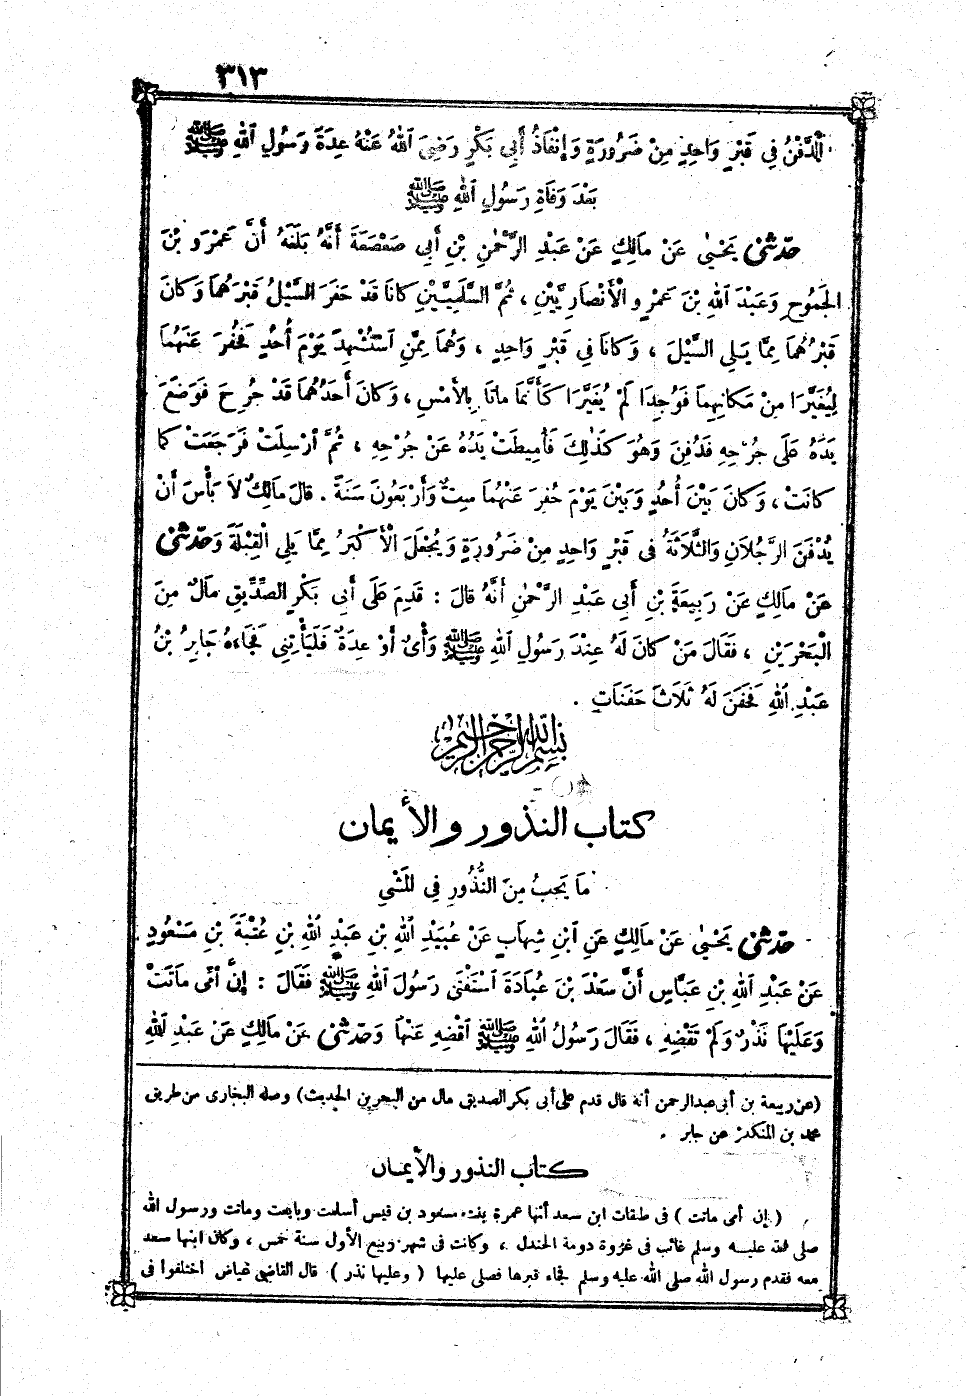 ٣١٣
الدَّفْنُ فِي قَبْرٍ وَاحِدٍ مِنْ ضَرُورَةٍ وَإِنْفَاذُ أَبِي بَكْرٍ رَضِيَ اللهُ عَنْهُ عِدَةَ رَسُولِ اللهِ ﷺ
بَعْدَ وَفَاةِ رَسُولِ اللهِ ﷺ
حدّثنى يَحْيَى عَنْ مَالِكٍ عَنْ عَبْدِ الرَّحْمٰنِ بْنِ أَبِي صَعْصَعَةَ أَنَّهُ بَلَغَهُ أَنَّ عَمْرَو بْنَ
الجَمُوحِ وَعَبْدَ اللهِ بْنَ عَمْرٍو الْأَنْصَارِيَّيْنِ ، ثُمَّ السَّلَمِيَّيْنِ كَانَا قَدْ حَفَرَ السَّيْلُ قَبْرَهُمَا وَكَانَ
قَبْرُهُمَا مِمَّا يَلِي السَّيْلَ ، وَكَانَا فِي قَبْرٍ وَاحِدٍ ، وَهُمَا مِمَّنِ اسْتُشْهِدَ يَوْمَ أُحُدٍ فَحُفِرَ عَنْهُمَا
لِيُغَيَّرَا مِنْ مَكَانِهِمَا فَوُجِدَا لَمْ يُغَيَّرَا كَأَنَّمَا مَاتَا بِالأَمْسِ ، وَكَانَ أَحَدُهُمَا قَدْ جُرِحَ فَوَضَعَ
يَدَهُ عَلَى جُرْحِهِ فَدُفِنَ وَهُوَ كَذٰلِكَ فَأُمِيطَتْ يَدُهُ عَنْ جُرْحِهِ ، ثُمَّ أُرْسِلَتْ فَرَجَعَتْ كَمَا
كَانَتْ ، وَكَانَ بَيْنَ أُحُدٍ وَبَيْنَ يَوْمَ حُفِرَ عَنْهُمَا سِتٌّ وَأَرْبَعُونَ سَنَةً . قَالَ مَالِكٌ لاَ بَأْسَ أَنْ
يُدْفَنَ الرَّجُلاَنِ وَالثَّلاَثَةُ فِي قَبْرٍ وَاحِدٍ مِنْ ضَرُورَةٍ وَيُجْعَلَ الْأَكْبَرُ مِمَّا يَلِي الْقِبْلَةَ وَحدّثنى
عَنْ مَالِكٍ عَنْ رَبِيعَةَ بْنِ أَبِي عَبْدِ الرَّحْمٰنِ أَنَّهُ قَالَ : قَدِمَ عَلَى أَبِي بَكْرٍ الصِّدِّيقِ مَالٌ مِنَ
الْبَحْرَيْنِ ، فَقَالَ مَنْ كَانَ لَهُ عِنْدَ رَسُولِ اللهِ ﷺ وَأْىٌ أَوْ عِدَةٌ فَلْيَأْتِنِي فَجَاءَهُ جَابِرُ بْنُ
عَبْدِ اللهِ فَحَفَنَ لَهُ ثَلاَثَ حَفَنَاتٍ .
بسم الله الرحمن الرحيم
كتاب النذور والأيمان
مَا يَجِبُ مِنَ النُّذُورِ فِي المَشْيِ
حدّثنى يَحْيَى عَنْ مَالِكٍ عَنِ ابْنِ شِهَابٍ عَنْ عُبَيْدِ اللهِ بْنِ عَبْدِ اللهِ بْنِ عُتْبَةَ بْنِ مَسْعُودٍ
عَنْ عَبْدِ اللهِ بْنِ عَبَّاسٍ أَنَّ سَعْدَ بْنَ عُبَادَةَ اسْتَفْتَى رَسُولَ اللهِ ﷺ فَقَالَ : إِنَّ أُمِّى مَاتَتْ
وَعَلَيْهَا نَذْرٌ وَلَمْ تَقْضِهِ ، فَقَالَ رَسُولُ اللهِ ﷺ اقْضِهِ عَنْهَا وَحدّثنى عَنْ مَالِكٍ عَنْ عَبْدِ اللهِ
(عن ربيعة بن أبى عبدالرحمن أنه قال قدم على أبى بكر الصديق مال من البحرين الحديث) وصله البخارى من طريق
محمد بن المنكدر عن جابر .
كتاب النذور والأيمان
( إن أمى ماتت ) فى طبقات ابن سعد أنها عمرة بنت مسعود بن قيس أسلمت وبايعت وماتت ورسول الله
صلى الله عليه وسلم غائب فى غزوة دومة الجندل ، وكانت فى شهر ربيع الأول سنة خمس ، وكان ابنها سعد
معه فقدم رسول الله صلى الله عليه وسلم فجاء قبرها فصلى عليها ( وعليها نذر ) قال القاضى عياض اختلفوا فى